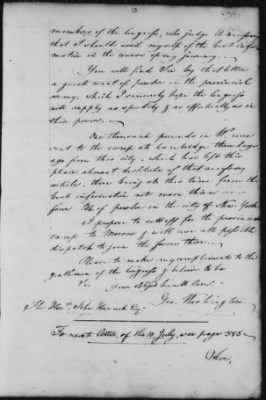 3
members of the Congress, who judge it necessary
that I should avail myself of the best infor
mation in the course of my journey.
You will find Sir by that letter
a great want of powder in the provincial
army, which I sincerely hope the Congress
will supply as speedily & as effectually as in
their power.
One thousand pounds in Wt were
sent to the camp at Cambridge three days
ago from this city, which has left this
place almost destitute of that necessary
article, there being at this time from the
best information not more than
four Bls of powder in the city of New York.
I propose to set off for the provincial
camp to morrow & will use all possible
dispatch to join the forces there.
Please to make my compliments to the
gentlemen of the Congress & believe to be
Sir Your Obliged hum
Geo. Washington
The Honble. John Hancock Esq.
For next letter, of the 10 July, see page 385